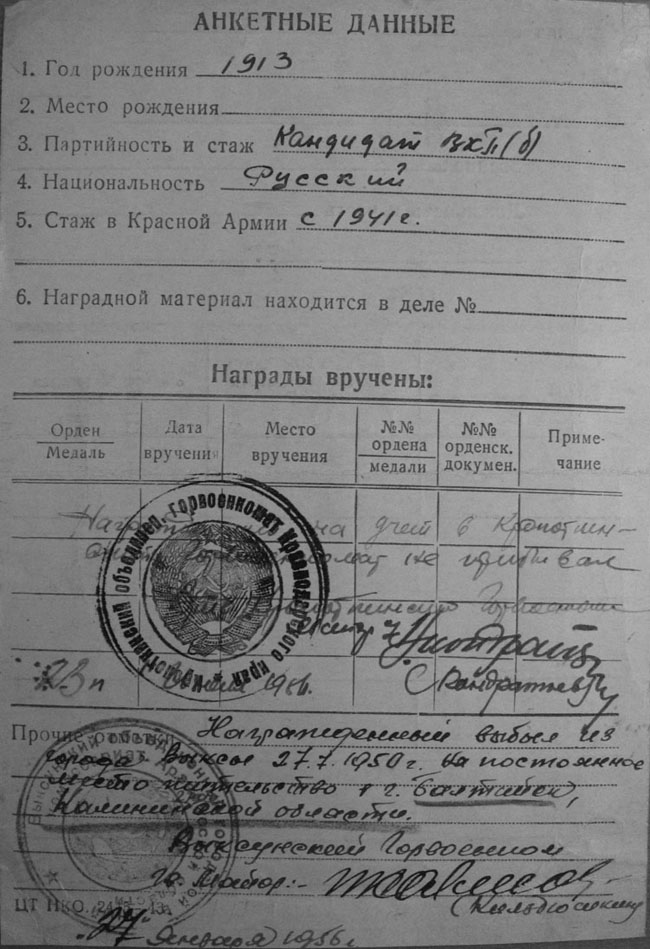 АНКЕТНЫЕ ДАННЫЕ
1. Год рождения 1913
2. Место рождения
3. Партийность и стаж Кандидат ВКП(б)
4. Национальность Русский
5. Стаж в Красной Армии с 1941 г.
6. Наградной материал находится в деле №
Награды вручены:
Орден Медаль
Дата вручения
Место вручения
№№ ордена медали
№№ орденск. докумен.
Приме-чание
на учет в Кропоткин-
не прибыл
Кропоткинский объединен. горвоенкомат Краснодарского края
Прочие отметки Награжденный выбыл из
города Выксы 27.7.1950 г. на постоянное
место жительство в г. Балтийск,
Калининской области.
Выксунский Горвоенком
Майор:-
ЦТ НКО.
27 Января 1956 г.